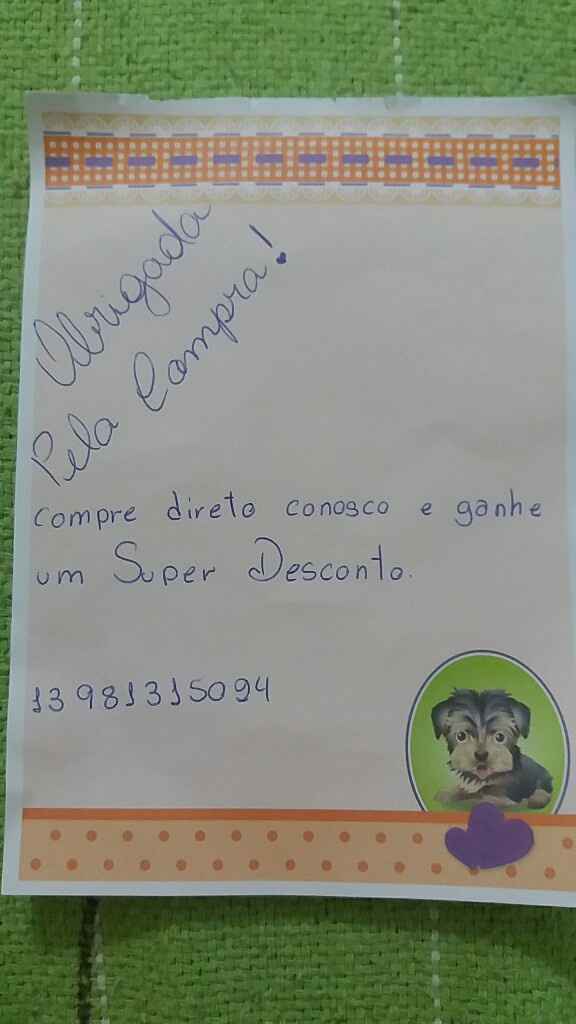 Obrigada
Pela Compra!
compre direto conosco e ganhe
um Super Desconto.
13981315094